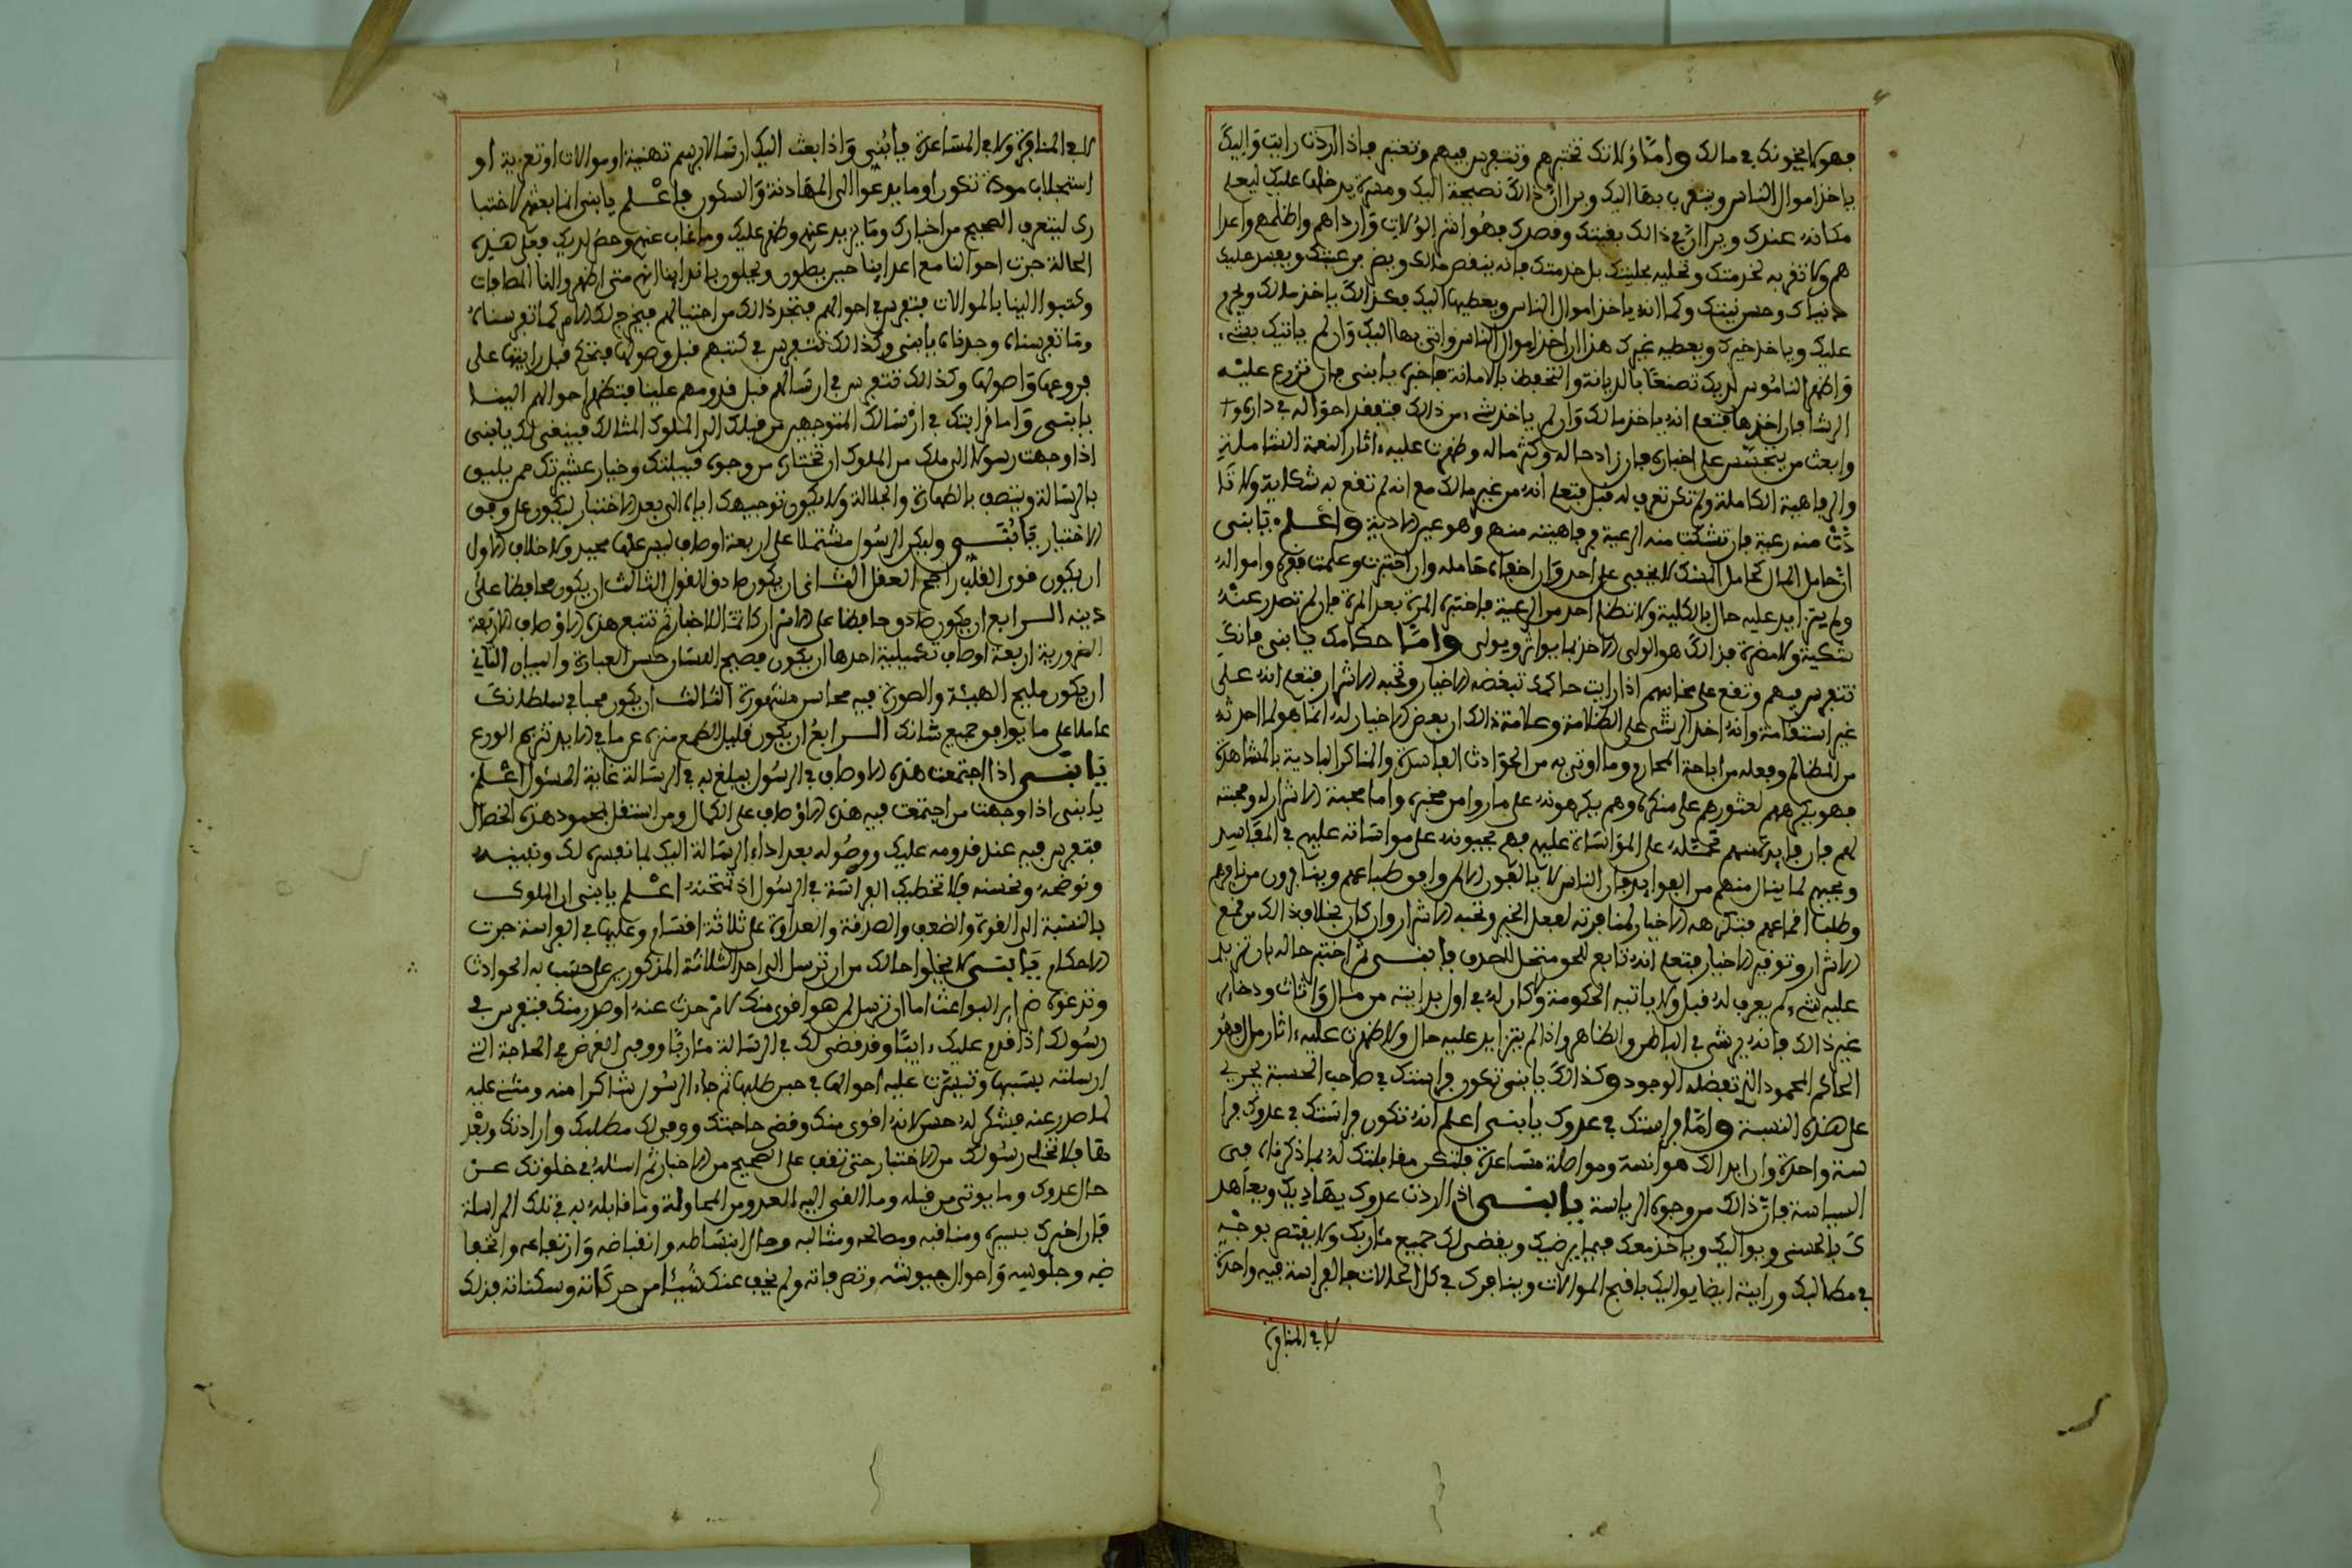 فهو لا يخونك في مالك واما ولاتك تختبرهم وتتفرس فيهم وتعتبر فاذا اردت رايت واليك
ياخذ اموال الناس ويتقرب بها اليك ويرا ان ذالك نصيحة اليك ومسرة يدخلها عليك ليعلي
مكانه عندك ويرا ان في ذالك بغيتك وقصدك فهو اشر الولات وارداهم واظلمهم واعدا
هم ولا تقربه لخدمتك وتحليه بحليتك بل خدمتك فانه ينقص مالك ويضر برعيتك ويفسد عليك
دنياك وحسن نيتك وكما انه ياخذ اموال الناس ويعطيها اليك فكذالك ياخذ مالك ويحرم
عليك وياخذ خيرك ويعطيه غيرك هذا ان اخذ اموال الناس واتى بها اليك وان لم ياتيك بشيء
واظهر الناموس لديك تصنعا بالديانة والتحفظ بالامانة فاختبره يا بني فان تزرع عليه
الرشا فان اخذها فتعلم انه ياخذ مالك وان لم ياخذ شيء من ذالك فتفقد احواله في داره و
وابعث من يتجسس على اخباره فان زاد حاله وكثر ماله وظهرت عليه ءاثار النعمة الشاملة
والرفاهية الكاملة ولم تكن تعرف له قبل فتعلم انه من غير مالك مع انه لم تقع به شكاية ولا تا
ذت منه رعية فان تشكت منه الرعية فرفاهيته منهم وهو عين الاذية واعلم يا بني
ان حامل المال كحامل المسك لا يخفى على احد وان اخفاه حامله وان اختبرت وعلمت فقره وامواله
ولم يتزايد عليه حال بالكلية ولا تظلم احد من الرعية فاختبره المرة بعد المرة فان لم تصدر عنه
شكية ولا مضرة فذالك هو الولي الاخذ بما يواثر ويولى واما حكامك يا بني فانك
تتفرس فيهم وتقع على مخابهم اذا رايت حاكمك تبغضه الاخيار وتحبه الاشرار فتعلم انه على
غير استقامة وانه اخذ الرشى على الظلامة وعلامة ذالك ان بعض الاخيار له انما هو لما احدثه
من المظالم وفعله من اباحة المحارم وما اوتي به من الحوادث الفاسدة والمناكر البادية بالمشاهدة
فهو يكرههم لعثورهم على منكره وهم يكرهونه على ما روا من مخبره واما محبة الاشرار له ومحبته
لهم فان فايدتهم تحمله على المواساة عليهم فهم يحبونه على مواساته عليهم في المفاسد
ويحبهم لما ينال منهم من الفوايد فان الناس لا يالفون الا لمن وافق طباعهم وينافرون من نافرهم
وطلب اقماعهم فتكرهه الاخيار لمنافرته لفعل الخير وتحبه الاشرار وان كان بخلاف ذالك من قمع
الاشرار وتوقير الاخيار فتعلم انه تابع للحق منتحل للصدق يا بني ثم اختبر حاله بان تزيد
عليه شيء لم يعرف له قبل ولاياتيه الحكومة ولا كان له في اول بدايته من مال واثاث ودخاير
غير ذالك فانه يرشى في الباطن والظاهر واذا لم يتزايد عليه حال ولا ظهرت عليه ءاثار مال فهو
الحاكم المحمود الذي تفضله الوجود وكذالك يا بني تكون فراستك في صاحب الحسبة يجري
على هذه النسبة واما فراستك في عدوك يا بني اعلم انه تكون فراستك في عدوك فرا
سة واحدة وان ابدا لك هوانسة ومواصلة مساعدة فلتكن مقابلتك له بما ذكرناه في
السياسة فان ذالك من وجوه الرياسة يا بني اذا اردت عدوك يهاديك ويعاهد
ك بالحسنى ويواليك وياخذ معك فيما يرضيك ويقضى لك جميع مئاربك ولا ينقص بوجه
في مطالبك ورايته ايضا يواليك باقبح الموالات وينافرك في كل الحالات فالفراسة فيه واحدة
لا في المنافرة
لا في المنافرة ولا في المساعدة يا بني واذا بعث اليك ارسالا برسم تهنية او موالات او تعزية او
استجلاب مودة تكون او ما يدعوا الى المهادنة والسكون فاعلم يا بني انما بعثهم لاختبا
رك ليتعرف الصحيح من اخبارك وما يزيد عنهم وظهر عليك وما غاب عنهم وحضر لديك فعلى هذه
الحالة جرت احوالنا مع اعداينا حين يطون ويحلون بافداينا انهم متى اظهروا لنا المصافات
وكتبوا الينا بالموالات فنتفرس في احوالهم فنجد ذالك من احتيالهم فيخرج لك الامر كما تفرسناه
وما تفرسناه وجدناه يا بني وكذالك نتفرس في كتبهم قبل وصولها فنحكم قبل رايتها على
فروعها واصولها وكذالك نتفرس في ارسالهم قبل قدومهم علينا فتظهر احوالهم الينا
يا بني واما فراستك في ارسالك المتوجهين من قبلك الى الملوك امثالك فينبغى لك يا بني
اذا وجهت رسولا الى ملك من الملوك ان تختاره من وجوه قبيلتك وخيار عشيرتك ممن يليق
بالرسالة ويتصف بالطهارة والجلالة ولا يكون توجيهك اياه الى بعد الاختبار ليكون على وفق
الاختيار يا بني وليكن الرسول مشتملا على اربعة اوصاف ليس عنها محيد ولا خلاف الاول
ان يكون قوي القلب راجح العقل الثاني ان يكون صادق القول الثالث ان يكون محافظا على
دينه الرابع ان يكون صادق حافظا على الاسرار كاتما للاخبار ثم تتبع هذه الاوصاف الاربعة
الضرورية اربعة اوصاف تكميلية احدها ان يكون فصيح اللسان حسن العبارة والبيان الثاني
ان يكون مليح الهيئة والصورة فيه محاسن مشهورة الثالث ان يكون محبا في سلطانك
عاملا على ما يوافق جميع شانك الرابع ان يكون قليل الطمع منزه عن ما في الايدي شيم الورع
يا بني اذا اجتمعت هذه الاوصاف في الرسول يبلغ به في الرسالة غاية المسئول اعلم
يا بني اذا وجهت من اجتمعت فيه هذه الاوصاف على الكمال ومن استقل بمحمود هذه الخصال
فتفرس فيه عند قدومه عليك ووصوله بعد اداء الرسالة اليك لما نفسره لك ونبينه
ونوضحه ونحسنه فلا تخطيك الفراسة في الرسول اذ تمتحنه اعلم يا بني ان الملوك
بالنسبة الى القوة والضعف والصداقة والعداوة على ثلاثة اقسام وعليها في الفراسة جرت
الاحكام يا بني لا يخلوا حالك من ان ترسل الى احد الثلاثة المذكورين على حسب به الحوادث
وتدعوه ضراير البواعث اما ان ترسل لمن هو اقوى منك لامر حدث عنه او صدر منك فتتفرس في
رسولك اذا قدم عليك ءايبا وقد قضى لك في الرسالة مئاربا ووفى الغرض في الحاجة التي
ارسلته بسببها وتيسرت عليه احوالها في حين طلبها ثم جاء الرسول شاكرا منه ومثني عليه
لما صدر عنه فيشكر له حسن لانه اقوى منك وقضى حاجتك ووفى لك مطلبك وارادتك وبعد
هذا فلا تخلي رسولك من الاختبار حتى تقف على الصحيح من الاخبار ثم اسئله في خلوتك عن
حال عدوك وما يوتى من قبله وما القى اليه العدو من المحاولة وما قابله به في تلك المراسلة
فان اخبرك بسيره ومناقبه ومصالحه ومثالبه وحال انبساطه وانقباضه وارتفاعه وانخفا
ضه وجلوسه واحوال جيوشه وتصرفاته ولم يخف عنك شيئا من حركاته وسكناته فذلك